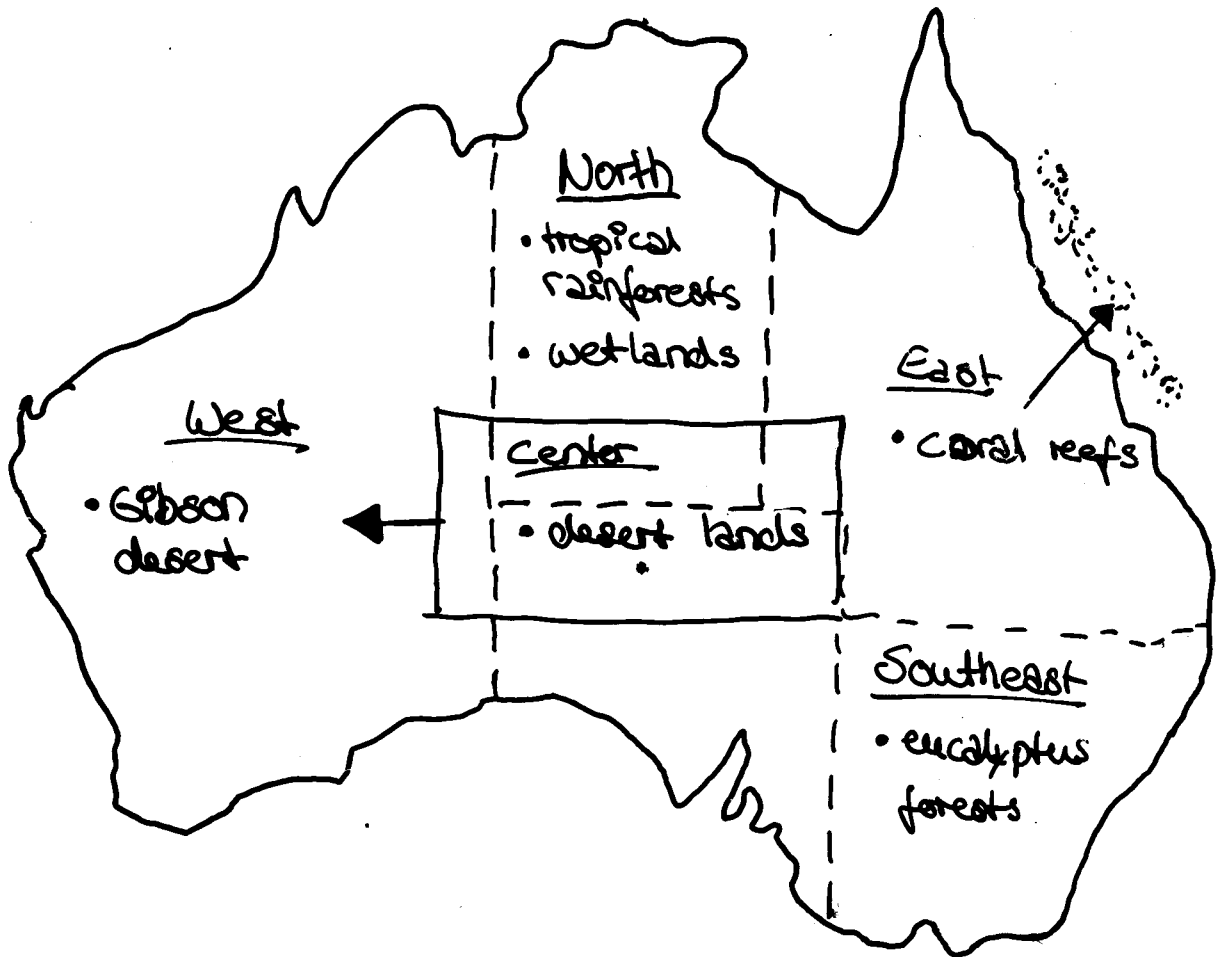 North
• tropical
rainforests
• wetlands
West
• Gibson
desert
Center
• desert lands
•
East
• coral reefs
Southeast
• eucalyptus
forests